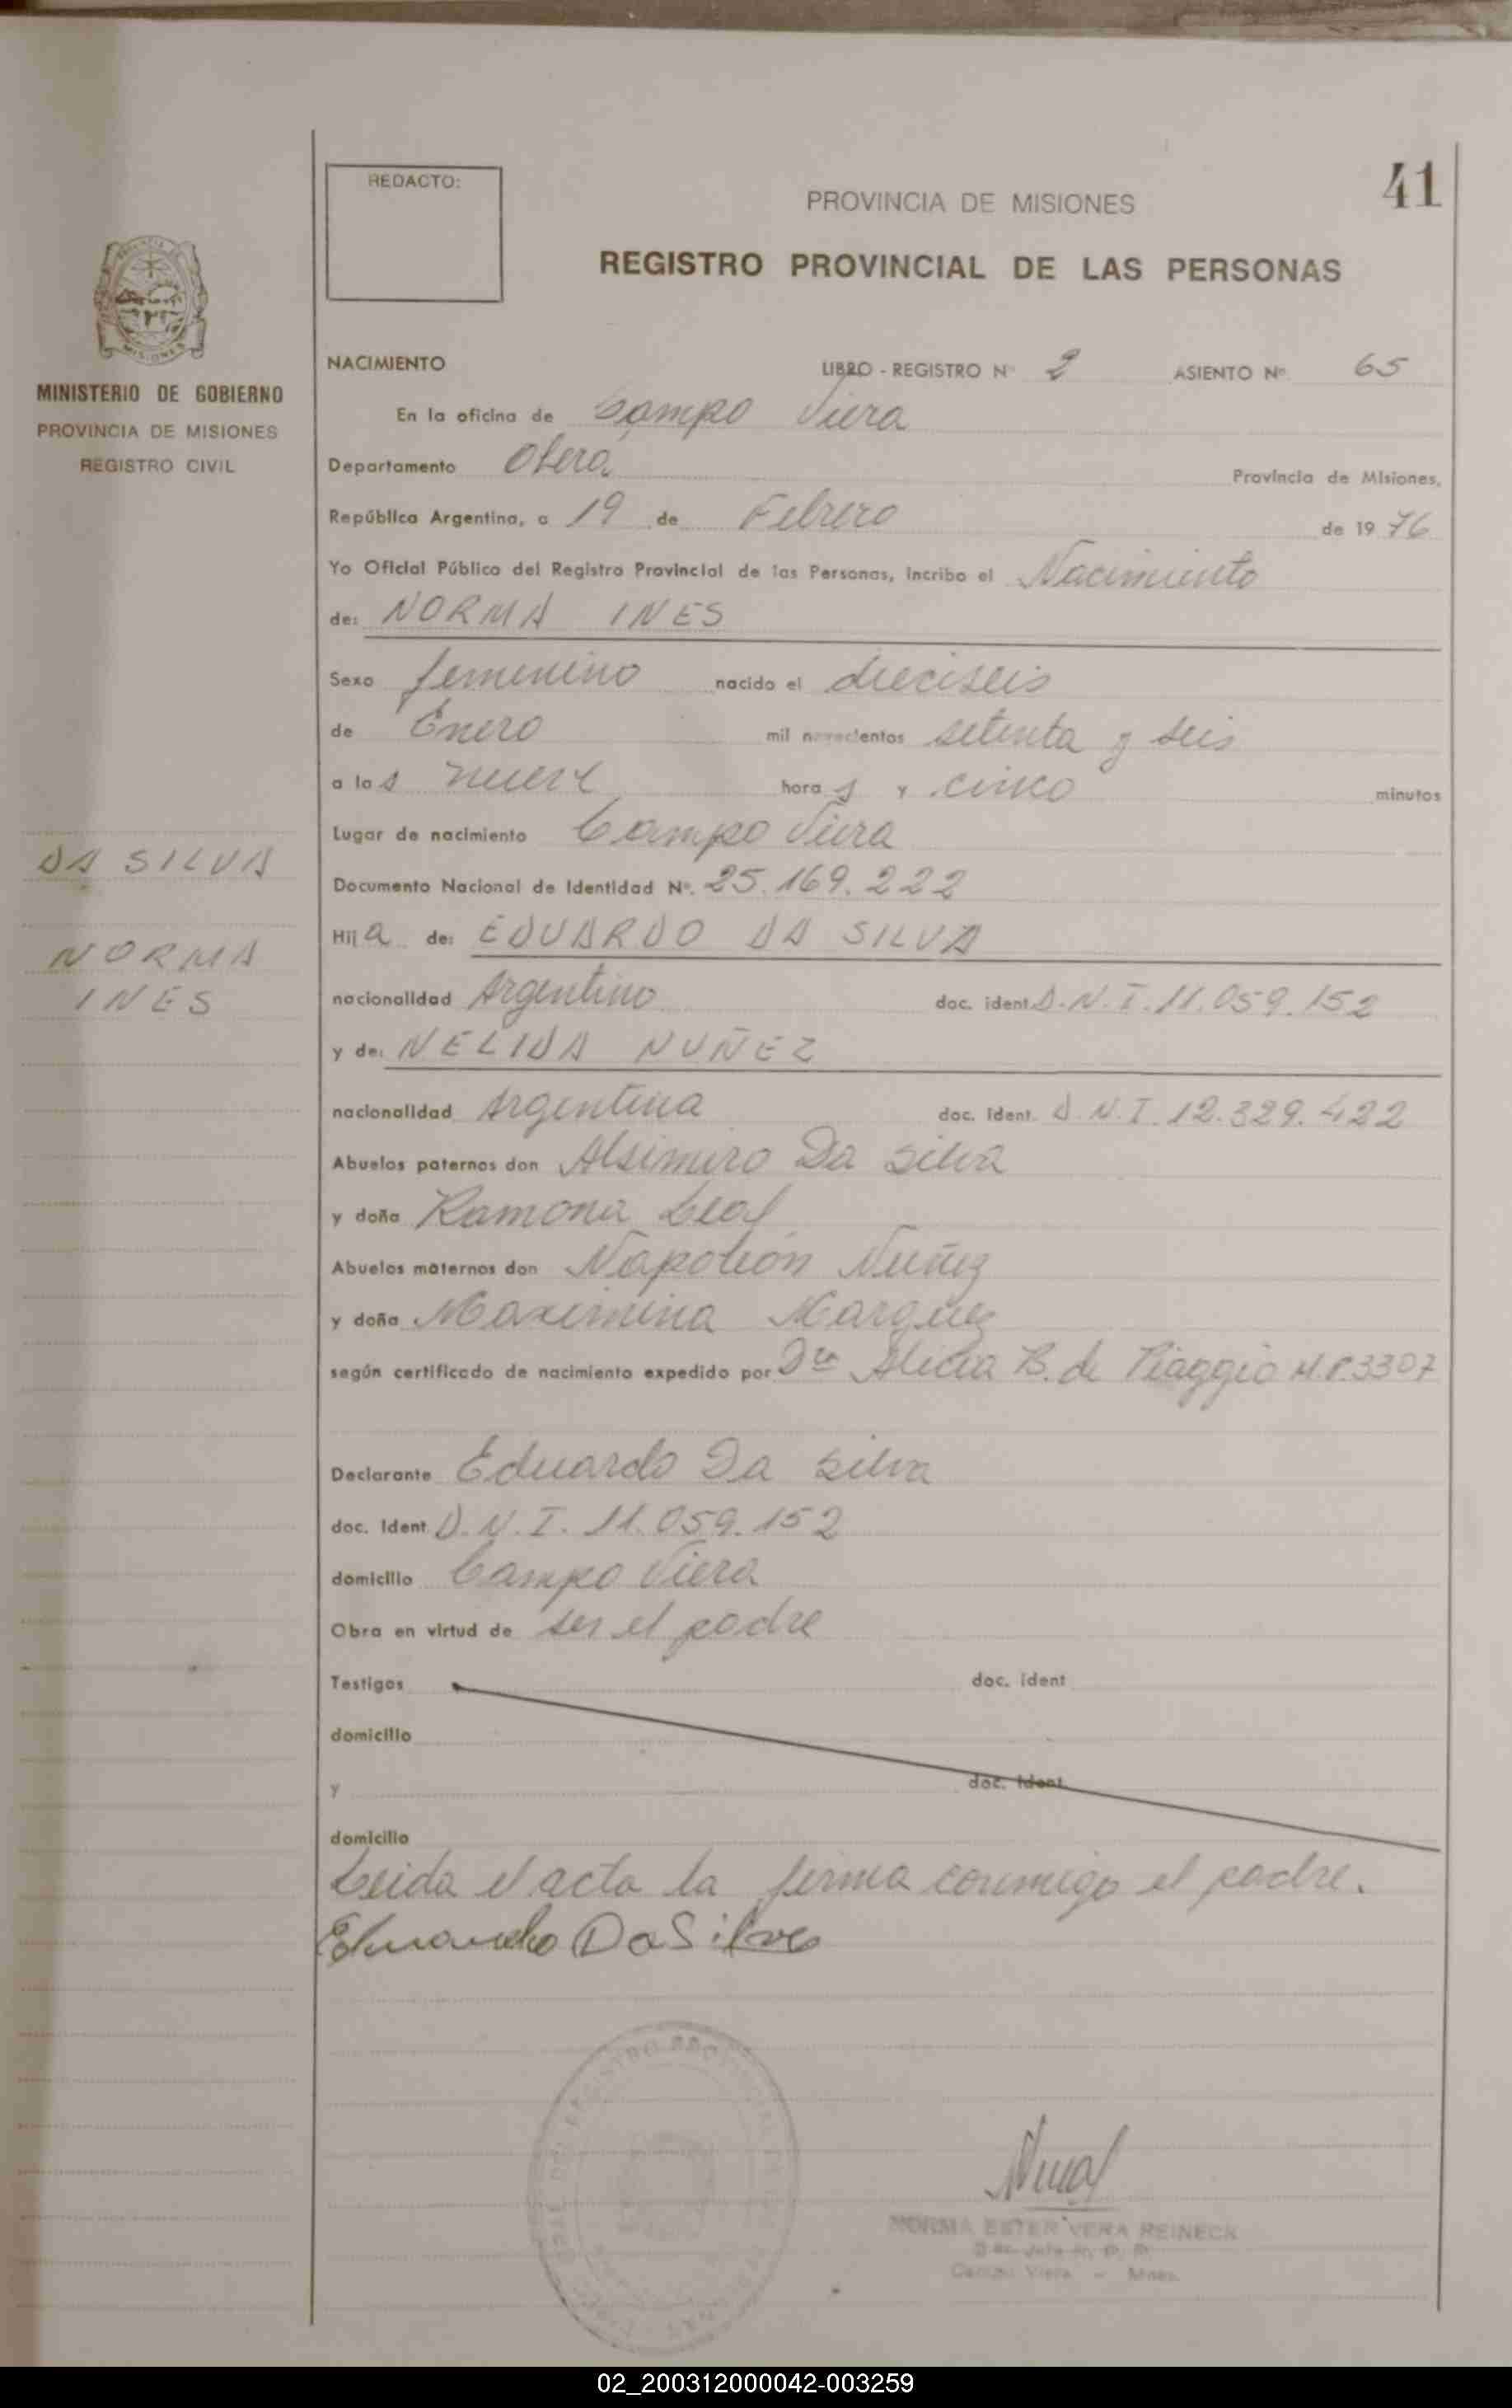 41
REDACTO:
PROVINCIA DE MISIONES
REGISTRO PROVINCIAL DE LAS PERSONAS
MISIONES
MINISTERIO DE GOBIERNO
PROVINCIA DE MISIONES
REGISTRO CIVIL
DA SILVA
NORMA
INES
NACIMIENTO LIBRO - REGISTRO Nº 2 ASIENTO Nº 65
En la oficina de Campo Viera
Departamento Oberá Provincia de Misiones,
República Argentina, a 19 de Febrero de 1976
Yo Oficial Público del Registro Provincial de las Personas, incribo el Nacimiento
de: NORMA INES
Sexo femenino nacido el dieciseis
de Enero mil novecientos setenta y seis
a las nueve horas y cinco minutos
Lugar de nacimiento Campo Viera
Documento Nacional de Identidad Nº. 25.169.222
Hija de: EDUARDO DA SILVA
nacionalidad Argentino doc. ident. D.N.I. 11.059.152
y de: NELIDA NUÑEZ
nacionalidad Argentina doc. ident. D.N.I. 12.329.422
Abuelos paternos don Alsimiro Da Silva
y doña Ramona Leal
Abuelos maternos don Napoleón Nuñez
y doña Maximina Marquez
según certificado de nacimiento expedido por Dra Alicia B. de Piaggio M.P.3307
Declarante Eduardo Da Silva
doc. Ident. D.N.I. 11.059.152
domicilio Campo Viera
Obra en virtud de ser el padre
Testigos doc. ident
domicilio
y doc. Ident
domicilio
Leida el acta la firma conmigo el padre.
Eduardo Da Silva
NORMA ESTER VERA REINECK
Campo Viera - Mnes.
02_200312000042-003259